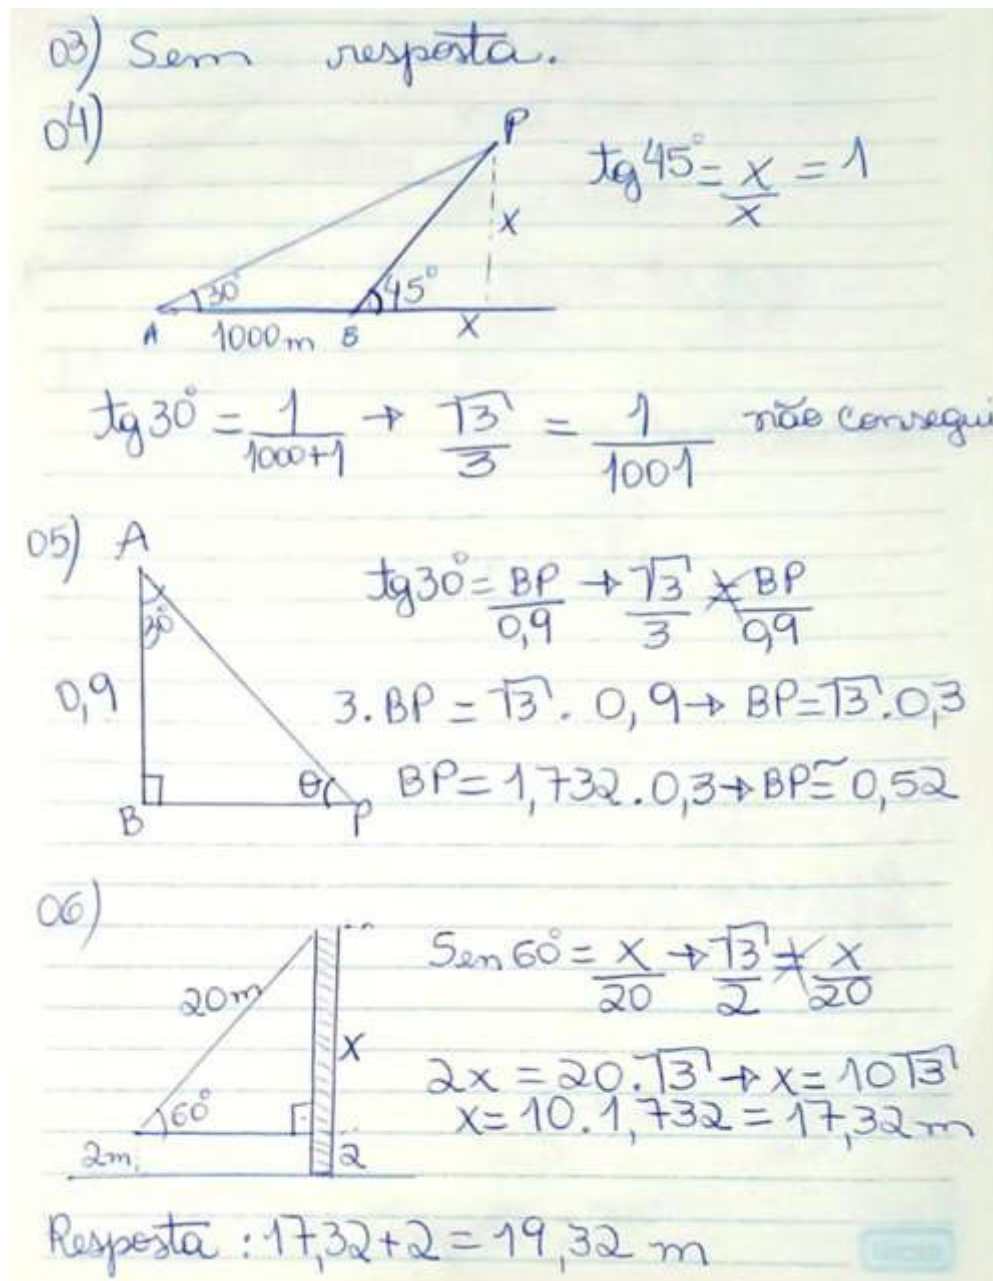 03) Sem resposta.
04)
P
tg 45° = x/x = 1
x
30° 45°
A 1000m B x
tg 30° = 1/1000+1 → √3/3 = 1/1001 não consegui
05) A
30°
tg 30° = BP/0,9 → √3/3 = BP/0,9
0,9
3.BP = √3 . 0,9 → BP = √3 . 0,3
B θ P
BP = 1,732 . 0,3 → BP ≅ 0,52
06)
20m
Sen 60° = x/20 → √3/2 = x/20
x
60°
2x = 20.√3 → x = 10√3
x = 10.1,732 = 17,32 m
2m. 2
Resposta : 17,32 + 2 = 19,32 m